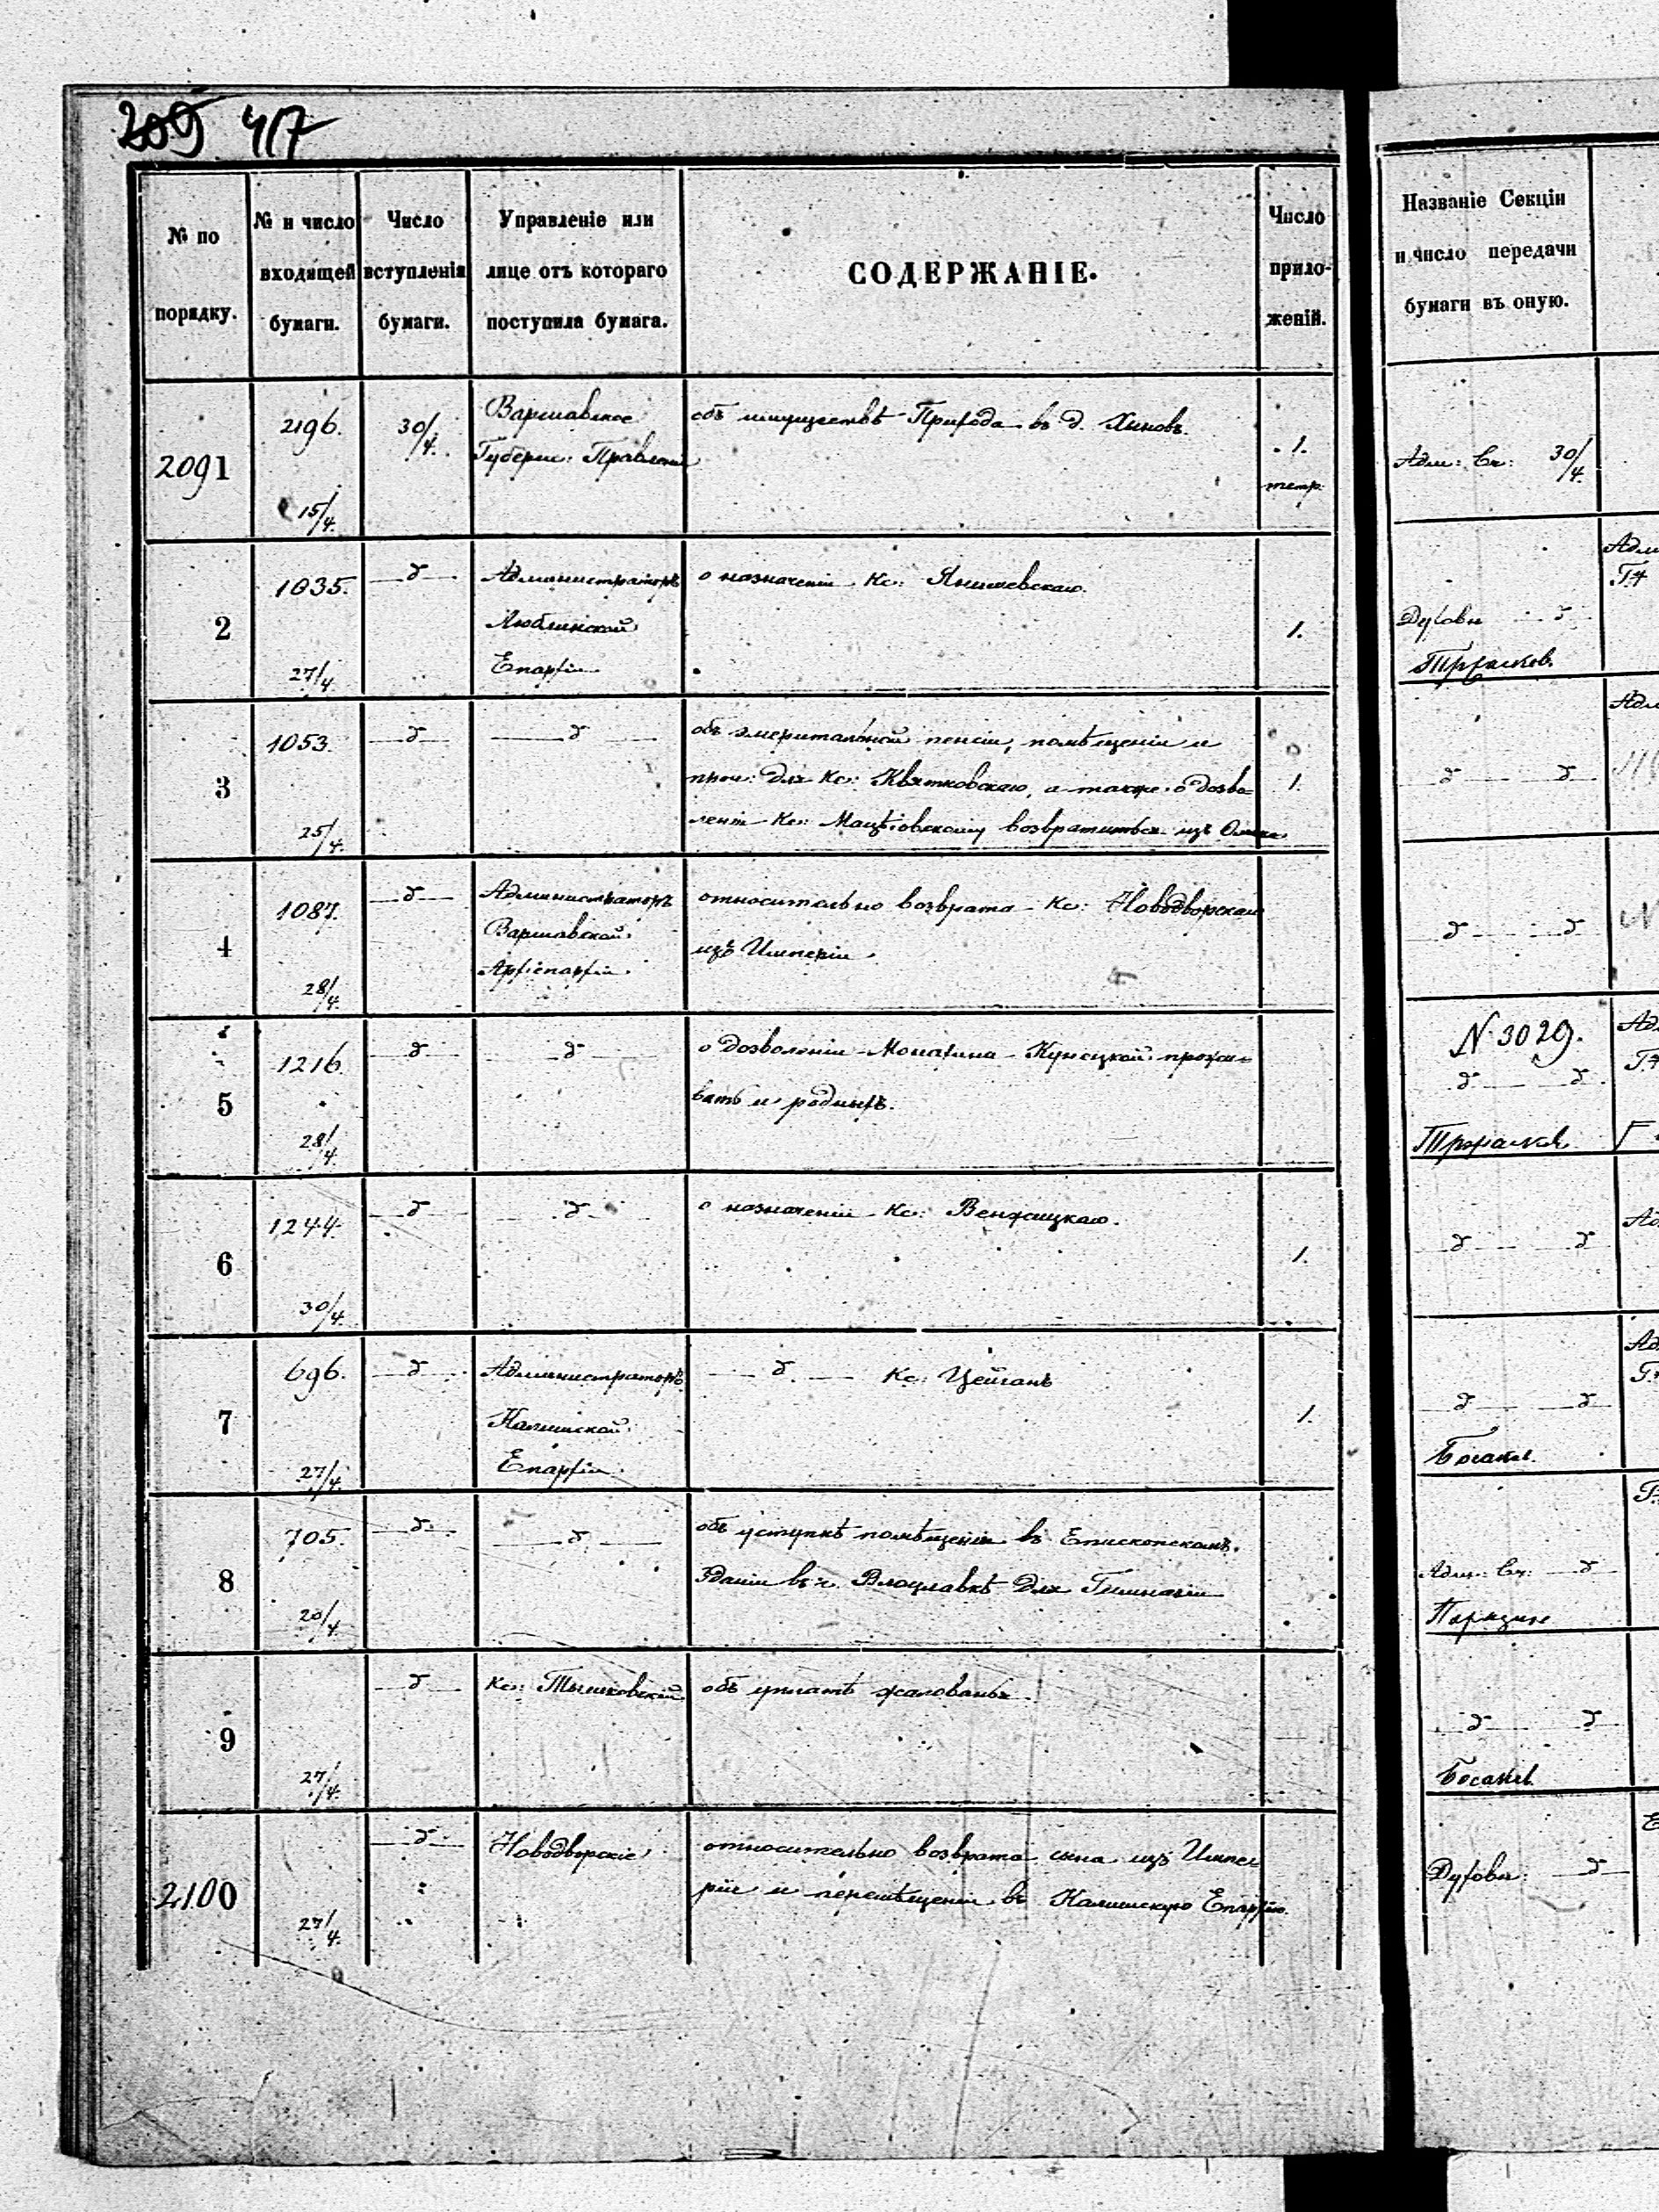 209 417
№ по
порядку.
№ и число
входящей
бумаги.
Число
вступленія
бумаги.
Управленіе или
лице отъ котораго
поступила бумага.
СОДЕРЖАНІЕ.
Число
прило-
женій.
Названіе Секціи
и число передачи
бумаги въ оную.
2091
2196.
15/4.
30/4.
Варшавское
Губерн: Правленіе
объ имуществѣ Прихода въ д. Хыновъ.
1.
тетр.
Адм: Ск: 30/4.
2
1035.
27/4
д
Администраторъ
Люблинской
Епархіи
о назначеніи Кс: Янишевскаго.
1.
Духовн д
3
1053.
25/4.
д
д
объ эмеритальной пенсіи, помѣщеніи и
проч: для Кс: Квятковскаго, а также о дозво-
леніи Кс: Мацѣіовскому возвратиться изъ
1.
д д
4
1087.
28/4.
д
Администраторъ
Варшавской
Архіепархіи.
относительно возврата Кс: Новодворскаго
изъ Имперіи.
д д
5
1216.
28/4.
д
д
о дозволеніи Монахинѣ прожи-
вать у родныхъ.
N 3029.
д д
6
1244.
30/4.
д
д
о назначеніи Кс:
1.
д д
7
696.
27/4.
д
Администраторъ
Калишской
Епархіи.
д Кс: Цейганъ
1.
д д
8
705.
20/4.
д
д
объ уступкѣ помѣщенія въ Епископскомъ
Зданіи въ г. Влоцлавкѣ для Гимназіи
Адм: Ск: д
9
27/4.
д
Кс: Тышковскій
объ уплатѣ жалованья.
д д
2100
27/4.
д
Новодворскіе
относительно возврата сына изъ Импе-
ріи и перемѣщеніи въ Калишскую Епархію.
Духовн: д